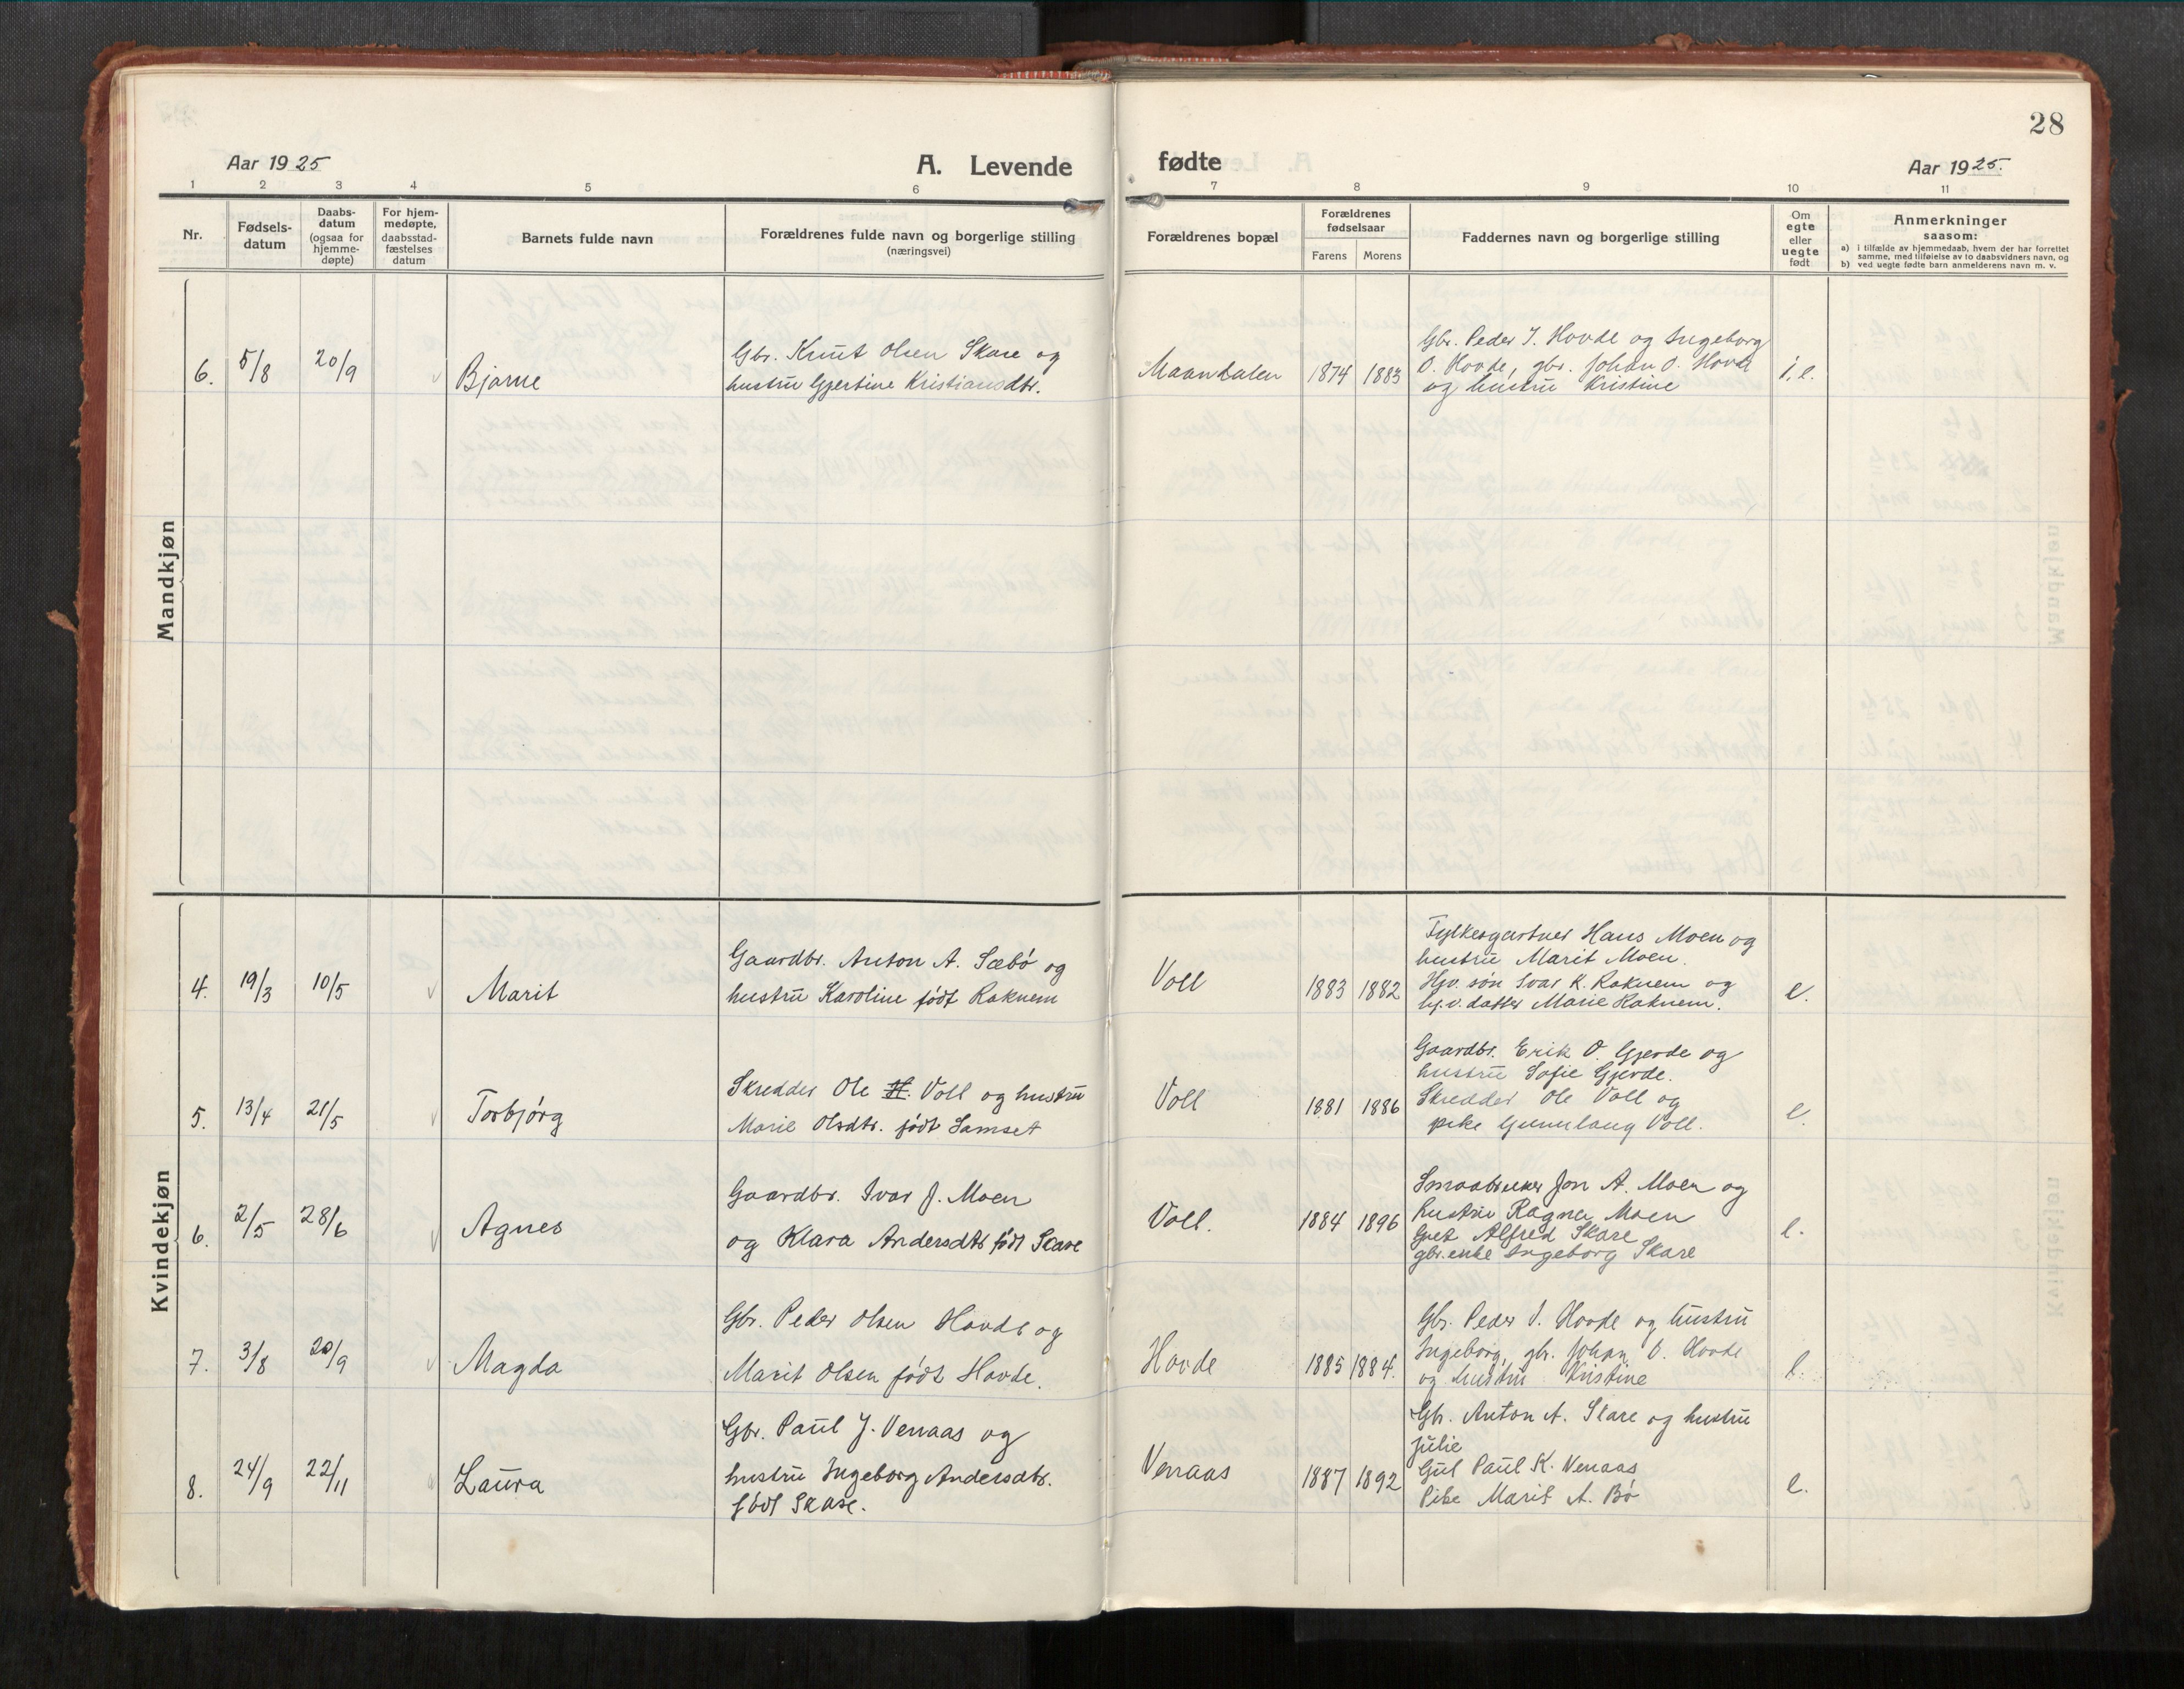 28
Aar 1925
A. Levende fødte
Aar 1925.
1 2 3 4 5 6 7 8 9 10 11
Nr.
Fødsels-
datum
Daabs-
datum
(ogsaa for
hjemme-
døpte)
For hjem-
medøpte,
daabsstad-
fæstelses
datum
Barnets fulde navn
Forældrenes fulde navn og borgerlige stilling
(næringsvei)
Forældrenes bopæl
Forældrenes
fødselsaar
Farens Morens
Faddernes navn og borgerlige stilling
Om
egte
eller
uegte
født
Anmerkninger
saasom:
a) i tilfælde av hjemmedaab, hvem der har forrettet
samme, med tilføielse av to daabsvidners navn, og
b) ved uegte fødte barn anmelderens navn m. v.
Mandkjøn
6. 5/8 20/9 Bjarne
Gbr. Knut Olsen Skare og
hustru Gjertine Kristiansdtr.
Maandalen 1874 1883
Gbr. Peder I. Hovde og Ingeborg
O. Hovde, gbr. Johan O. Hovde
og hustru Kristine
e.
Kvindekjøn
4. 19/3 10/5 Marit
Gaardbr. Anton A. Sæbö og
hustru Karoline født Raknem
Voll 1883 1882
Fylkesgartner Hans Moen og
hustru Marit Moen.
Hjv. søn Ivar K. Raknem og
hj.v. datter Marie Raknem.
e.
5. 13/4 21/5 Torbjørg
Skredder Ole H. Voll og hustru
Marie Olsdtr. født Samset
Voll 1881 1886
Gaardbr. Erik O. Gjerde og
hustru Sofie Gjerde.
Skredder Ole Voll og
pike Gunnlaug Voll.
e.
6. 2/5 28/6 Agnes
Gaardbr. Ivar J. Moen
og Klara Andersdtr født Skare
Voll. 1884 1896
Smaabruker Jon A. Moen og
hustru Ragna Moen
Gut Alfred Skare
gbr. enke Ingeborg Skare
e.
7. 3/8 20/9 Magda
Gbr. Peder Olsen Hovde og
Marit Olsen født Hovde.
Hovde 1885 1884.
Gbr. Peder I. Hovde og hustru
Ingeborg, gbr. Johan O. Hovde
og hustru Kristine
e.
8. 24/9 22/11 Laura
Gbr. Paul J. Venaas og
hustru Ingeborg Andersdtr.
født Skare.
Venaas 1887 1892
Gbr. Anton A. Skare og hustru
Julie
Gut Paul K. Venaas
Pike Marit A. Bö
e.